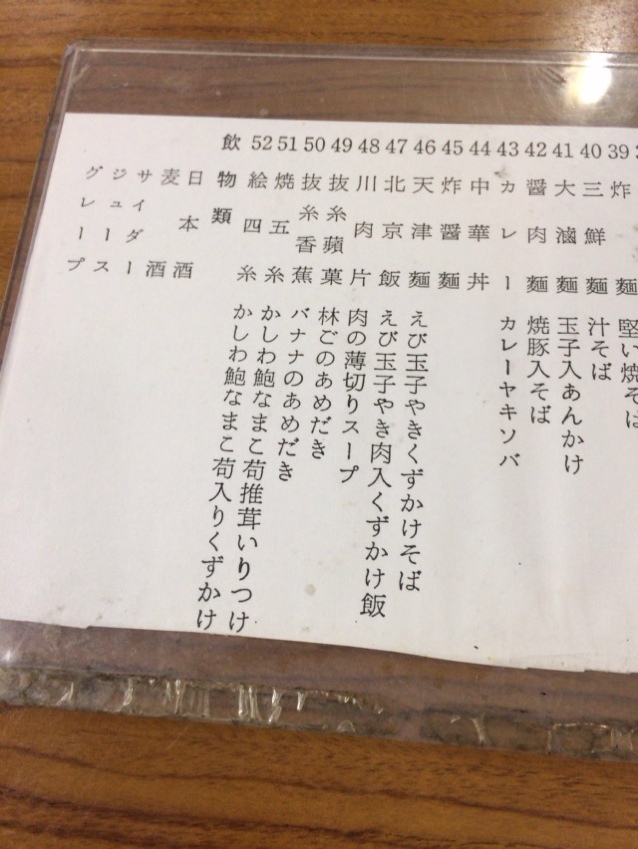 39 炸麺 堅い焼そば
40 三鮮麺 汁そば
41 大滷麺 玉子入あんかけ
42 醤肉麺 焼豚入そば
43 カレー カレーヤキソバ
44 中華丼
45 炸醤麺
46 天津麺 えび玉子やきくずかけそば
47 北京飯 えび玉子やき肉入くずかけ飯
48 川肉片 肉の薄切りスープ
49 抜糸蘋菓 林ごのあめだき
50 抜糸香蕉 バナナのあめだき
51 焼五糸 かしわ鮑なまこ荀推茸いりつけ
52 絵四糸 かしわ鮑なまこ荀入りくずかけ
飲物類
日本酒
麦酒
サイダー
ジュース
グレープ